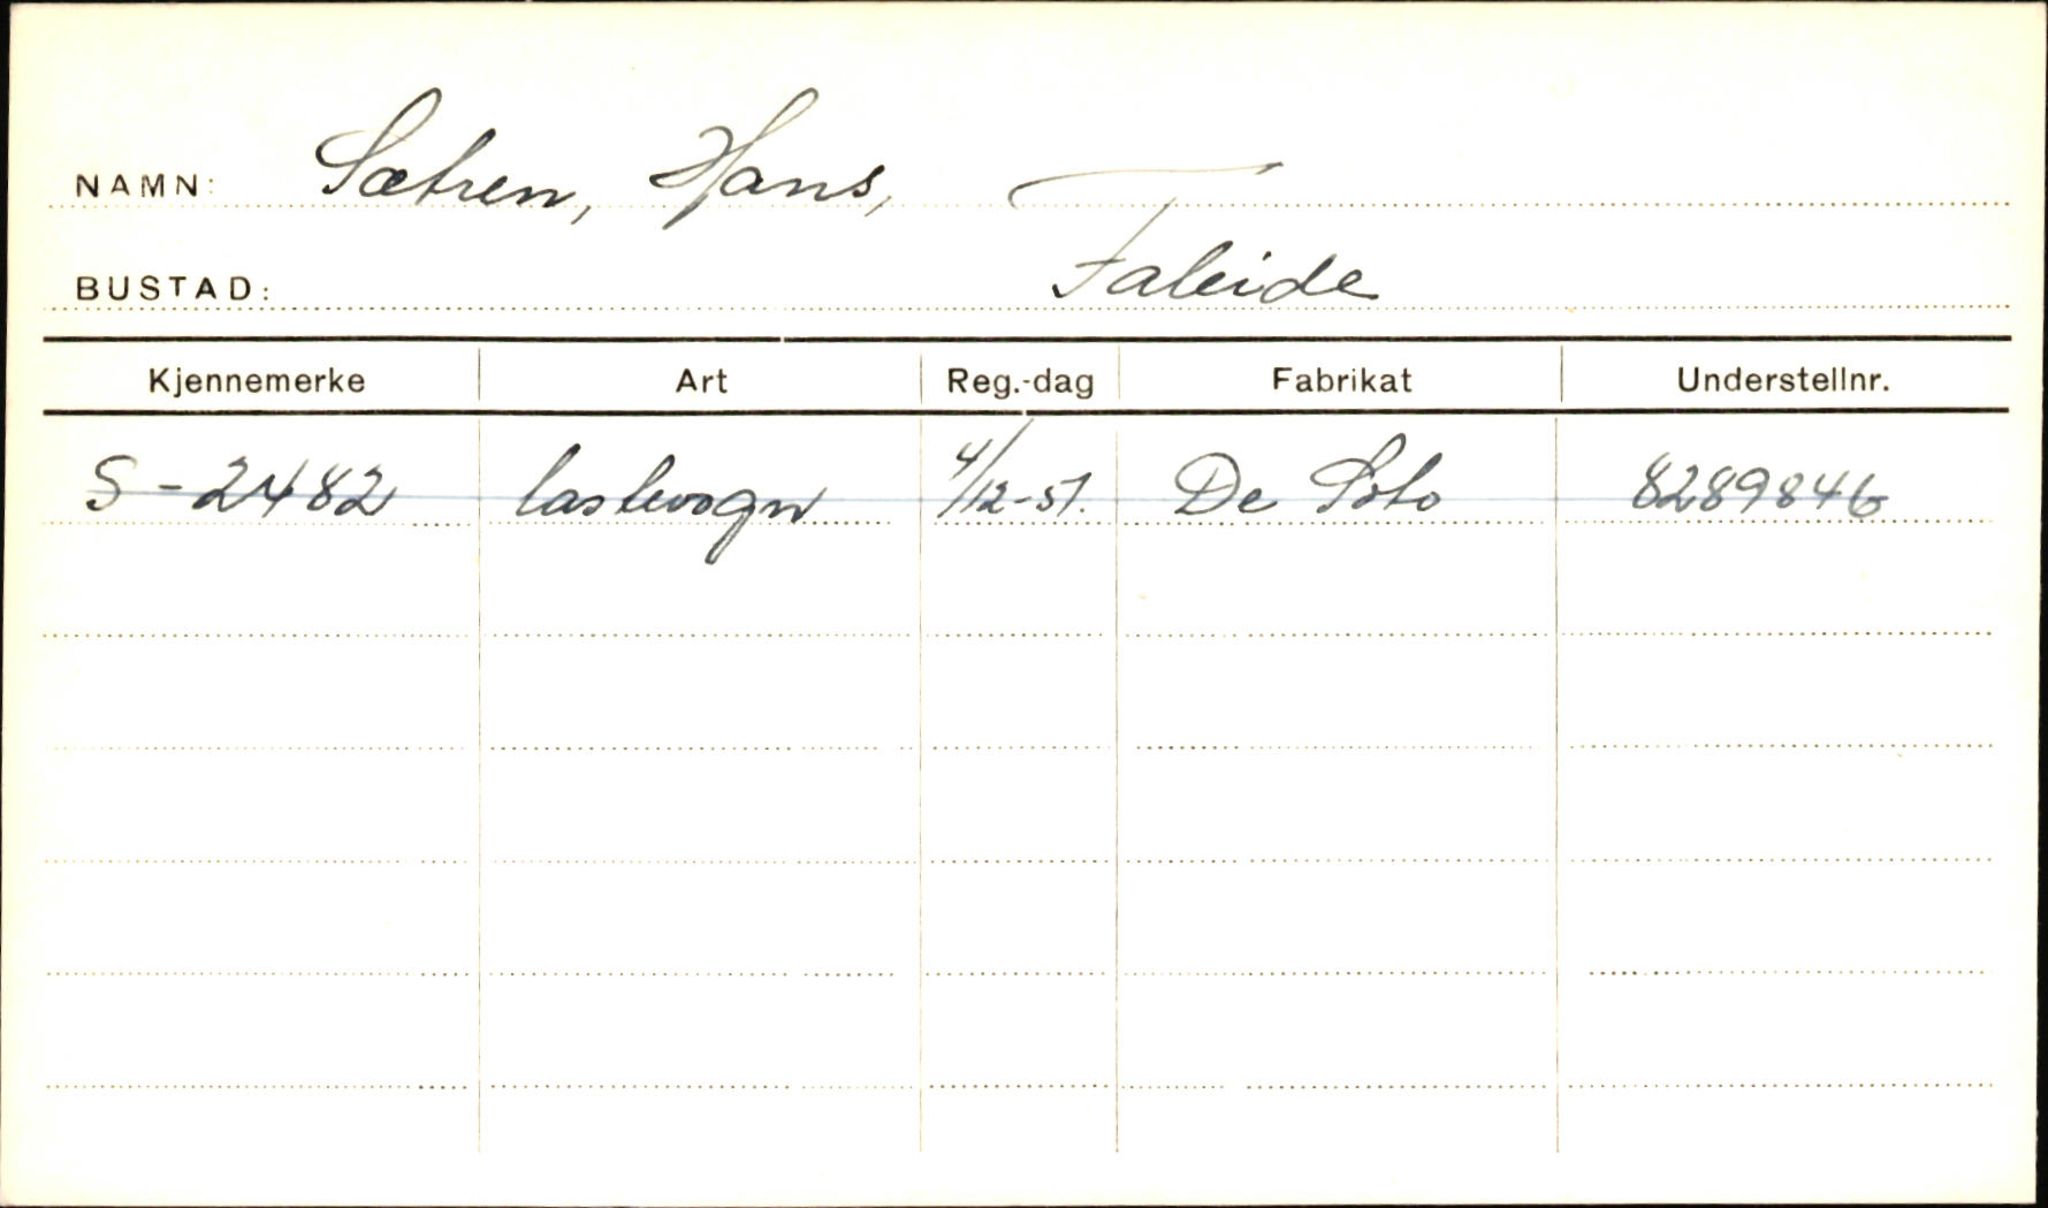 NAMN: Sætren, Hans,
BUSTAD: Faleide
Kjennemerke Art Reg.-dag Fabrikat Understellnr.
S-2482 lastevogn 4/12-51. De Soto 8289846